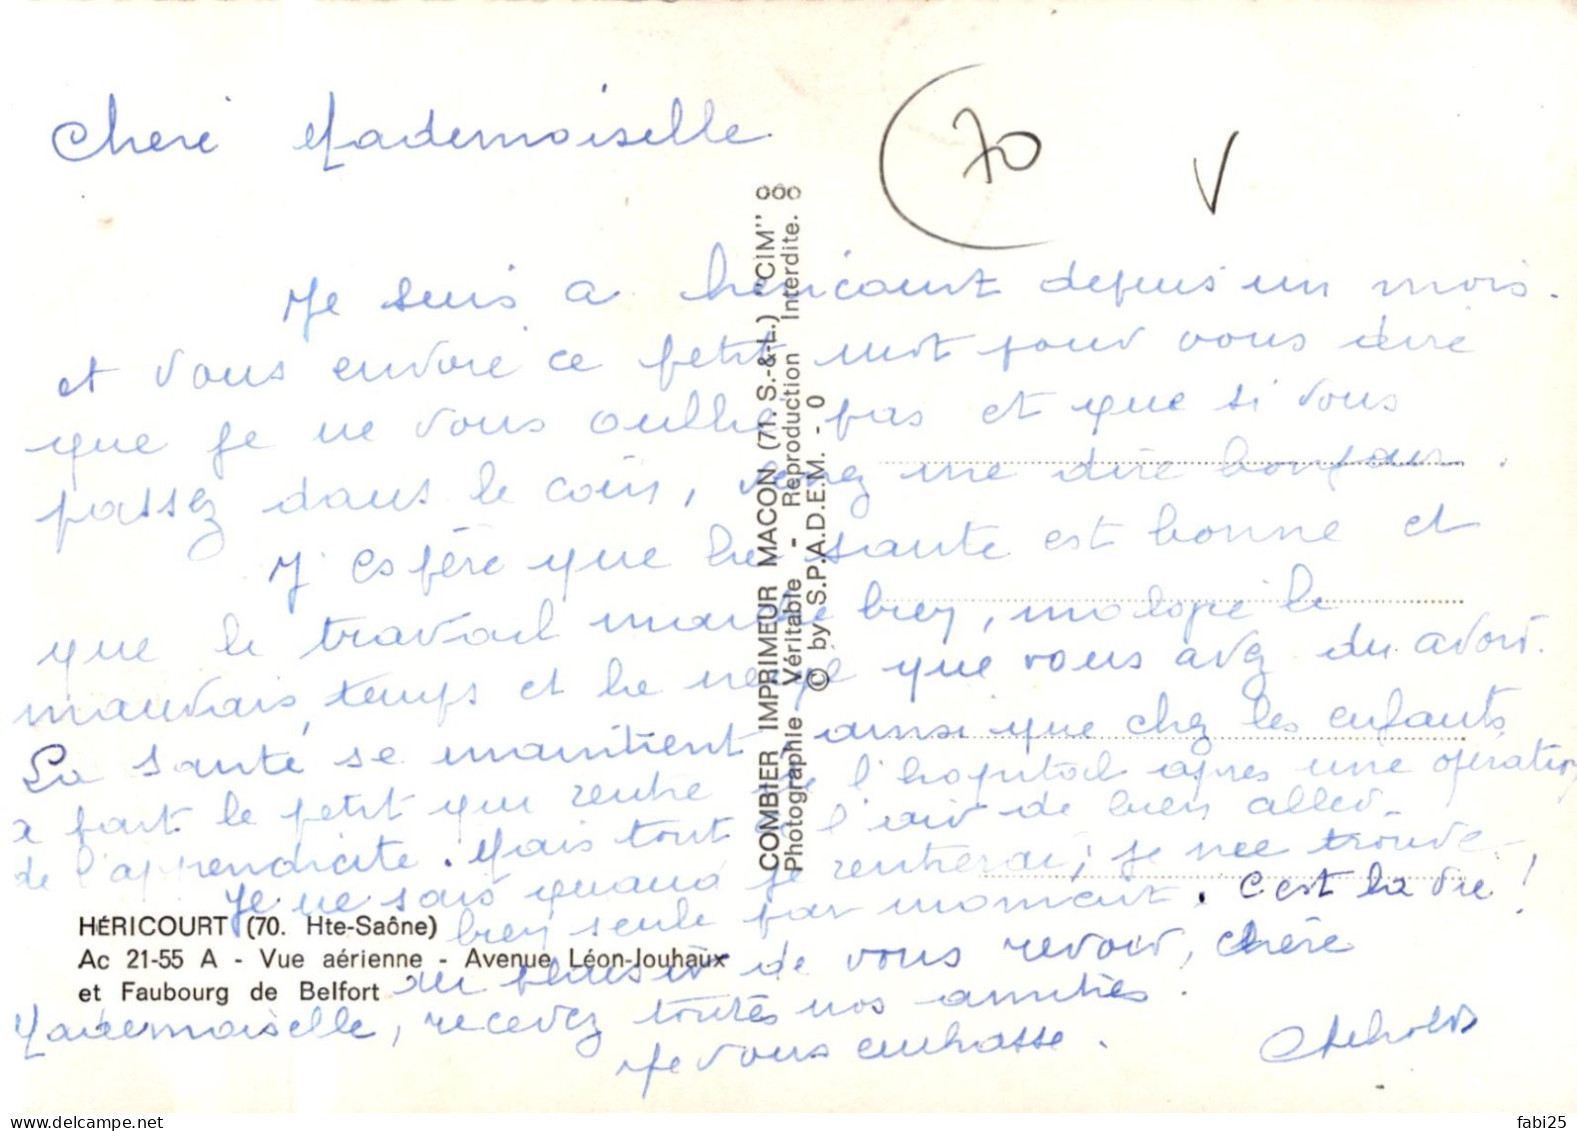 Chere Mademoiselle
70 V
Je suis a héricourt depuis un mois.
et vous envoie ce petit mot pour vous dire
que je ne vous oublie pas et que si vous
passez dans le coin, venez me dire bonjour.
J'espère que la santé est bonne et
que le travail marche bien, malgré le
mauvais temps et la neige que vous avez du avoir.
La santé se maintient, ainsi que chez les enfants
a part le petit qui rentre de l'hopital apres une opération
de l'appendicite. Mais tout a l'air de bien aller.
Je ne sais quand je rentrerai, je me trouve
bien seule par moment. C'est la vie !
au plaisir de vous revoir, chère
Mademoiselle, recevez toutes nos amitiés.
Je vous embrasse.
HÉRICOURT (70. Hte-Saône)
Ac 21-55 A - Vue aérienne - Avenue Léon-Jouhaux
et Faubourg de Belfort
COMBIER IMPRIMEUR MACON (71. S.-&-L.) "CIM"
Photographie Véritable - Reproduction Interdite.
© by S.P.A.D.E.M. - 0
delcampe.net
fabi25